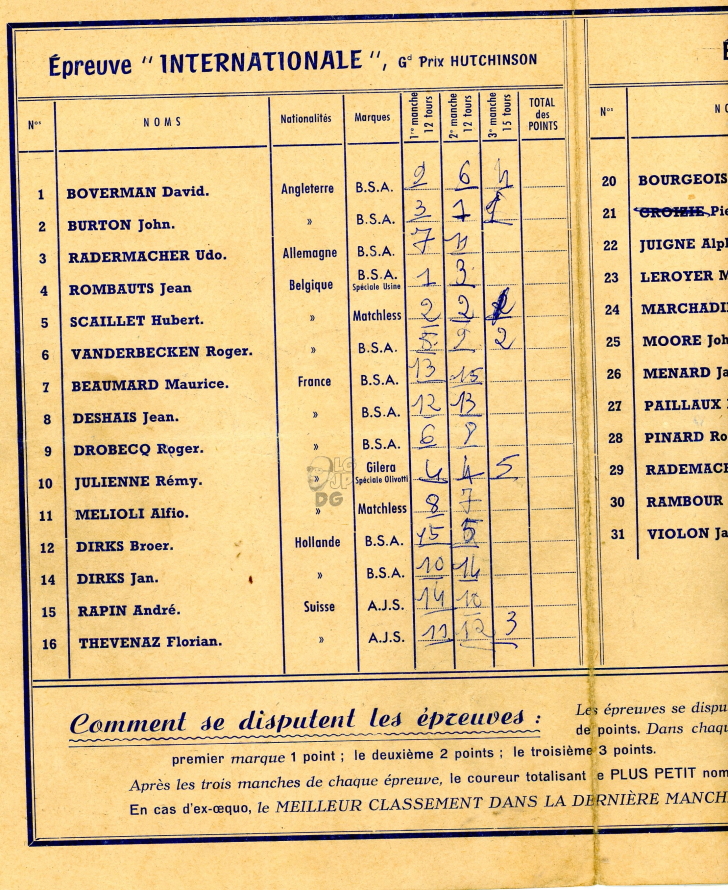 Épreuve "INTERNATIONALE", Gd Prix HUTCHINSON
Nos NOMS Nationalités Marques 1re manche 12 tours 2e manche 12 tours 3e manche 15 tours TOTAL des POINTS
1 BOVERMAN David. Angleterre B.S.A. 2 6 4
2 BURTON John. » B.S.A. 3 1 1
3 RADERMACHER Udo. Allemagne B.S.A. 7 11
4 ROMBAUTS Jean Belgique B.S.A. Spéciale Usine 1 3
5 SCAILLET Hubert. » Matchless 2 2
6 VANDERBECKEN Roger. » B.S.A. 5 9 2
7 BEAUMARD Maurice. France B.S.A. 13 15
8 DESHAIS Jean. » B.S.A. 12 13
9 DROBECQ Roger. » B.S.A. 6 8
10 JULIENNE Rémy. » Gilera Spéciale Olivotti 4 4 5
11 MELIOLI Alfio. » Matchless 8 7
12 DIRKS Broer. Hollande B.S.A. 15 5
14 DIRKS Jan. » B.S.A. 10 14
15 RAPIN André. Suisse A.J.S. 14 10
16 THEVENAZ Florian. » A.J.S. 11 12 3
LG
JP
DG
Nos
20 BOURGEOIS
21 CROIZIE Pie
22 JUIGNE Alp
23 LEROYER M
24 MARCHADI
25 MOORE Joh
26 MENARD Ja
27 PAILLAUX
28 PINARD Ro
29 RADEMACH
30 RAMBOUR
31 VIOLON Ja
Comment se disputent les épreuves :
Les épreuves se dispu
de points. Dans chaqu
premier marque 1 point ; le deuxième 2 points ; le troisième 3 points.
Après les trois manches de chaque épreuve, le coureur totalisant le PLUS PETIT nom
En cas d'ex-œquo, le MEILLEUR CLASSEMENT DANS LA DERNIÈRE MANCH